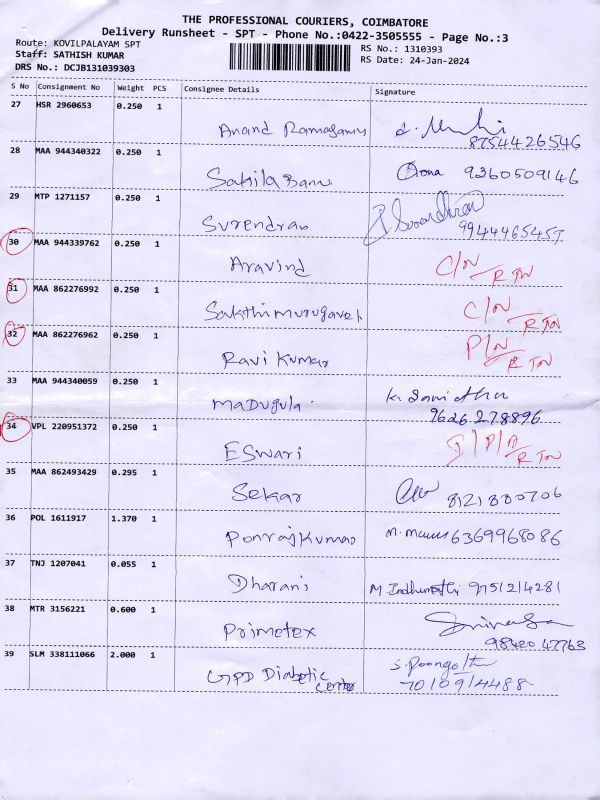 THE PROFESSIONAL COURIERS, COIMBATORE
Delivery Runsheet - SPT - Phone No.:0422-3505555 - Page No.:3
Route: KOVILPALAYAM SPT
Staff: SATHISH KUMAR
DRS No.: DCJB131039303
RS No.: 1310393
RS Date: 24-Jan-2024
S No Consignment No Weight PCS Consignee Details Signature
27 HSR 2960653 0.250 1
Anand Ramasamy
8754426546
28 MAA 944340322 0.250 1
Sakila Banu 9360509146
29 MTP 1271157 0.250 1
Surendran Surendran
9944465457
30 MAA 944339762 0.250 1
Aravind C/N RTN
31 MAA 862276992 0.250 1
Sakthimurugavel C/N RTN
32 MAA 862276962 0.250 1
Ravi Kumar P/N RTN
33 MAA 944340059 0.250 1
Madugula
9626278896
34 VPL 220951372 0.250 1
Eswari RTN
35 MAA 862493429 0.295 1
Sekar 8121880706
36 POL 1611917 1.370 1
Ponrajkumar 6369968086
37 TNJ 1207041 0.055 1
Dharani M. Indhumathi 9751214281
38 MTR 3156221 0.600 1
Primetex
98420 47763
39 SLM 338111066 2.000 1
GPD Diabetic
center
7010914488